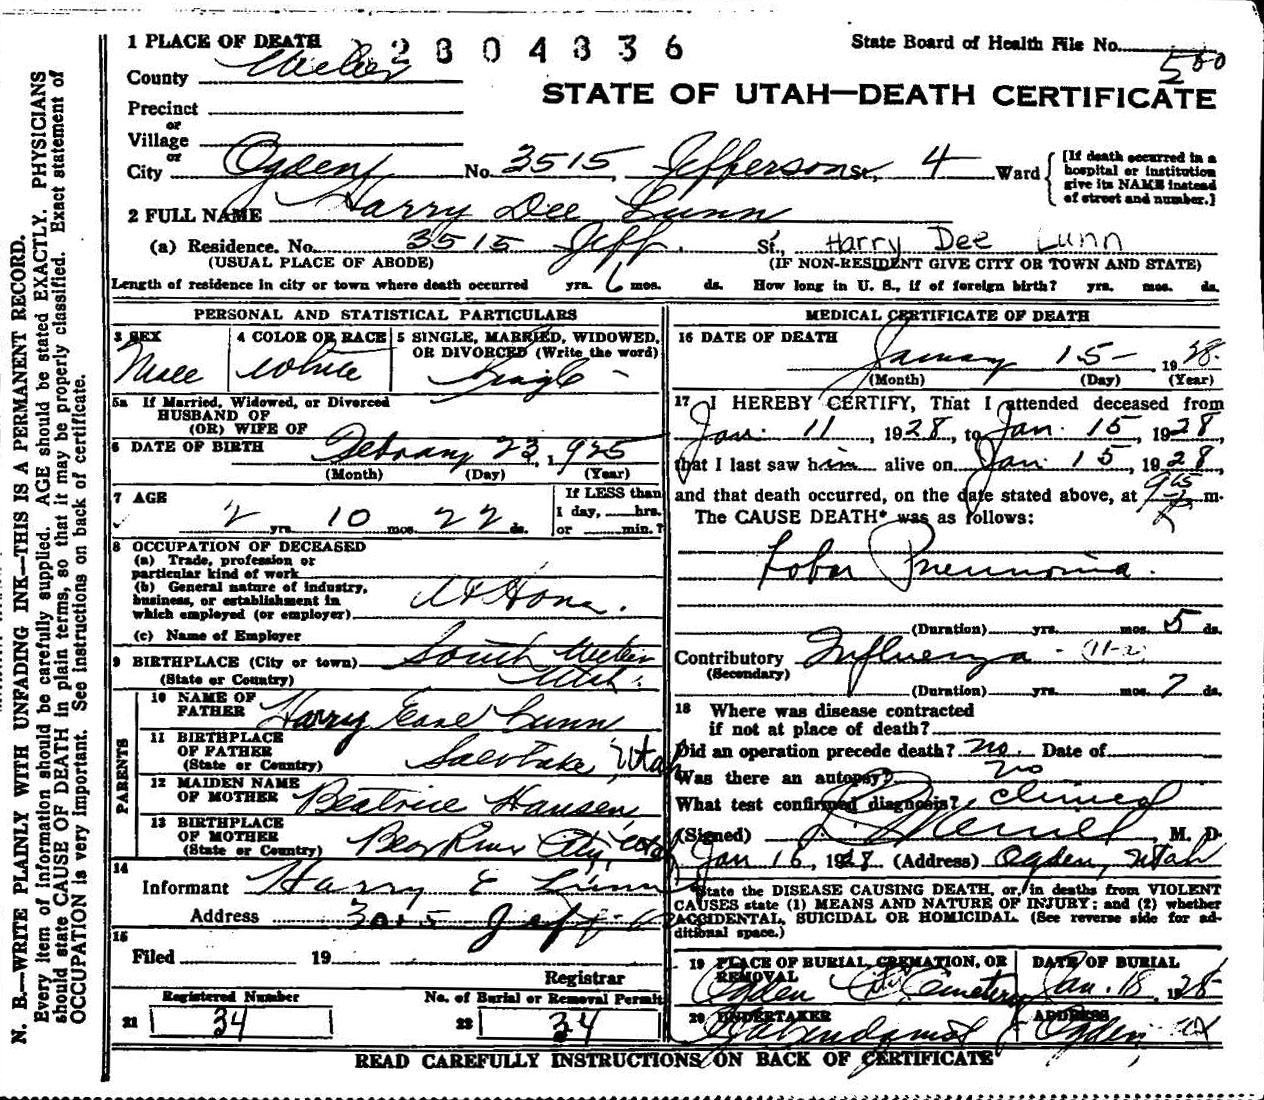 1 PLACE OF DEATH 2804836 State Board of Health File No. 500
County Weber
STATE OF UTAH—DEATH CERTIFICATE
Precinct
or
Village
or
City Ogden No. 3515, Jefferson St., 4 Ward {[If death occurred in a hospital or institution give its NAME instead of street and number.]
2 FULL NAME Harry Dee Lunn
(a) Residence. No. 3515 Jeff. St., Harry Dee Lunn
(USUAL PLACE OF ABODE) (IF NON-RESIDENT GIVE CITY OR TOWN AND STATE)
Length of residence in city or town where death occurred yrs. 6 mos. ds. How long in U. S., if of foreign birth? yrs. mos. ds.
PERSONAL AND STATISTICAL PARTICULARS
3 SEX Male
4 COLOR OR RACE White
5 SINGLE, MARRIED, WIDOWED, OR DIVORCED (Write the word) Single -
5a If Married, Widowed, or Divorced
HUSBAND OF
(OR) WIFE OF
6 DATE OF BIRTH February 23, 1925
(Month) (Day) (Year)
7 AGE 2 yrs. 10 mos. 22 ds.
If LESS than
1 day, hrs.
or min.?
8 OCCUPATION OF DECEASED
(a) Trade, profession or
particular kind of work
(b) General nature of industry,
business, or establishment in
which employed (or employer) At Home.
(c) Name of Employer
9 BIRTHPLACE (City or town) South Weber
(State or Country) Utah.
PARENTS
10 NAME OF FATHER Harry Earl Lunn
11 BIRTHPLACE OF FATHER (State or Country) Salt Lake, Utah
12 MAIDEN NAME OF MOTHER Beatrice Hansen,
13 BIRTHPLACE OF MOTHER (State or Country) Bear River City, Utah
14
Informant Harry E Lunn
Address 3015 Jeff
15
Filed 19
Registrar
Registered Number
21 34
No. of Burial or Removal Permit
22 34
MEDICAL CERTIFICATE OF DEATH
16 DATE OF DEATH January 15- 1928.
(Month) (Day) (Year)
17 I HEREBY CERTIFY, That I attended deceased from
Jan. 11, 1928, to Jan. 15, 1928,
that I last saw him alive on Jan. 15, 1928,
and that death occurred, on the date stated above, at 9 15 m.
The CAUSE DEATH* was as follows:
Lobar Pneumonia.
(Duration) yrs. mos. 5 ds.
Contributory Influenza - (11-2)
(Secondary)
(Duration) yrs. mos. 7 ds.
18 Where was disease contracted
if not at place of death?
Did an operation precede death? no. Date of
Was there an autopsy? no
What test confirmed diagnosis? Clinical
(Signed) Merrill M. D.
Jan 16, 1928 (Address) Ogden, Utah
*State the DISEASE CAUSING DEATH, or, in deaths from VIOLENT
CAUSES state (1) MEANS AND NATURE OF INJURY; and (2) whether
ACCIDENTAL, SUICIDAL OR HOMICIDAL. (See reverse side for additional space.)
19 PLACE OF BURIAL, CREMATION, OR REMOVAL Ogden City Cemetery
DATE OF BURIAL Jan. 18, 1928
20 UNDERTAKER
ADDRESS Ogden, Ut
READ CAREFULLY INSTRUCTIONS ON BACK OF CERTIFICATE
N. B.—WRITE PLAINLY WITH UNFADING INK—THIS IS A PERMANENT RECORD.
Every item of information should be carefully supplied. AGE should be stated EXACTLY. PHYSICIANS
should state CAUSE OF DEATH in plain terms, so that it may be properly classified. Exact statement of
OCCUPATION is very important. See instructions on back of certificate.